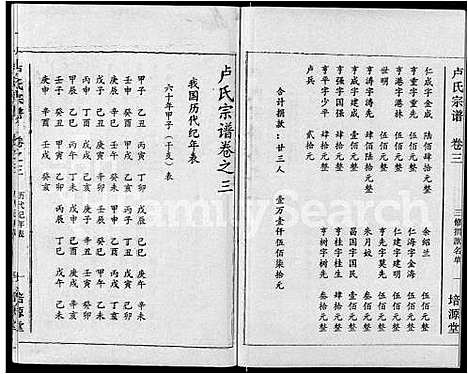 卢氏宗谱 卷三
三修捐款名单 培源堂
仁成字金成 陆佰肆拾元整
亨重字重先 伍佰元整
亨字港林 伍佰元整
世明 伍佰元整
亨字涛先 肆佰陆拾元整
亨字国强 肆佰元整
亨字国栋 肆拾元整
亨字平少 肆拾元整
卢兵 贰拾元
余绍兰 伍佰元整
仁海字金海 伍佰元整
仁建字建明 伍佰元整
亨先字昊先 伍佰元整
朱月姣 伍佰元整
昌国字国民 肆佰元整
亨柱字柱生 肆拾元整
亨树字树先 叁拾元整
合计捐款：廿三人 壹万壹仟伍佰柒拾元
卢氏宗谱卷之三
我国历代纪年表
六十年甲子（干支）表
甲子 乙丑 丙寅 丁卯 戊辰 己巳 庚午 辛未
壬申 癸酉 甲戌 乙亥 丙子 丁丑 戊寅 己卯
庚辰 辛巳 壬午 癸未 甲申 乙酉 丙戌 丁亥
戊子 己丑 庚寅 辛卯 壬辰 癸巳 甲午 乙未
丙申 丁酉 戊戌 己亥 庚子 辛丑 壬寅 癸卯
甲辰 乙巳 丙午 丁未 戊申 己酉 庚戌 辛亥
壬子 癸丑 甲寅 乙卯 丙辰 丁巳 戊午 己未
庚申 辛酉 壬戌 癸亥
卷之三
历代纪年表
FamilySearch